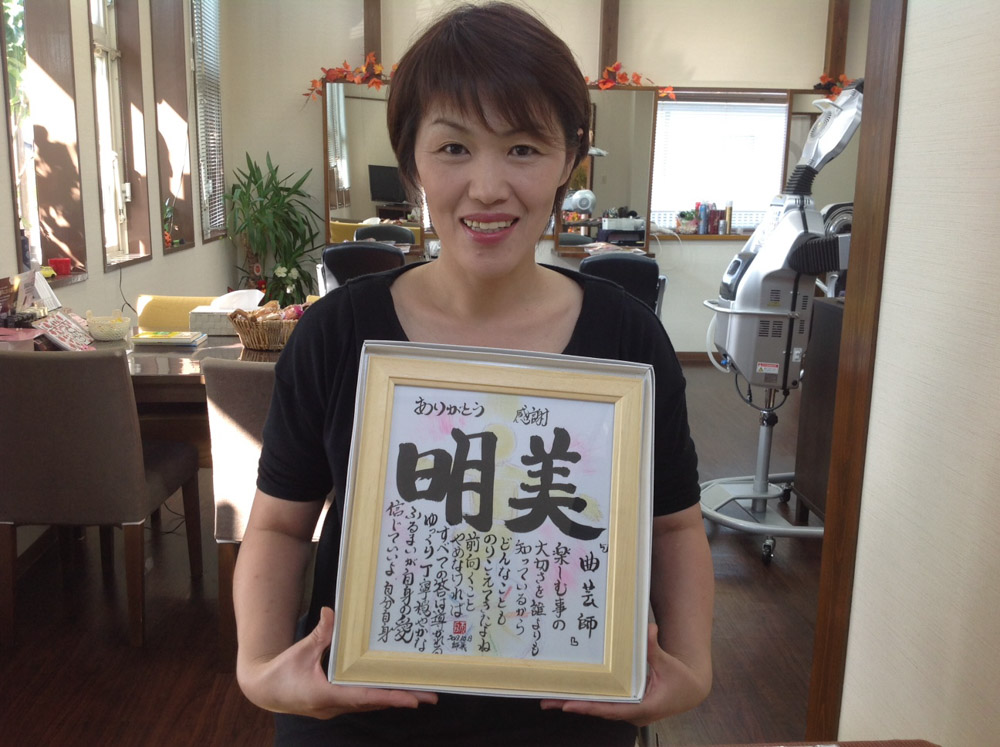 ありがとう 感謝
明美
『曲芸師』
楽しむ事の
大切さを誰よりも
知っているから
どんなことも
のりこえてきたよね
前向くこと
やめなければ
すべての答は導かれる
ゆっくり丁寧穏やかな
ふるまいが自身の愛
信じていいよ自分自身